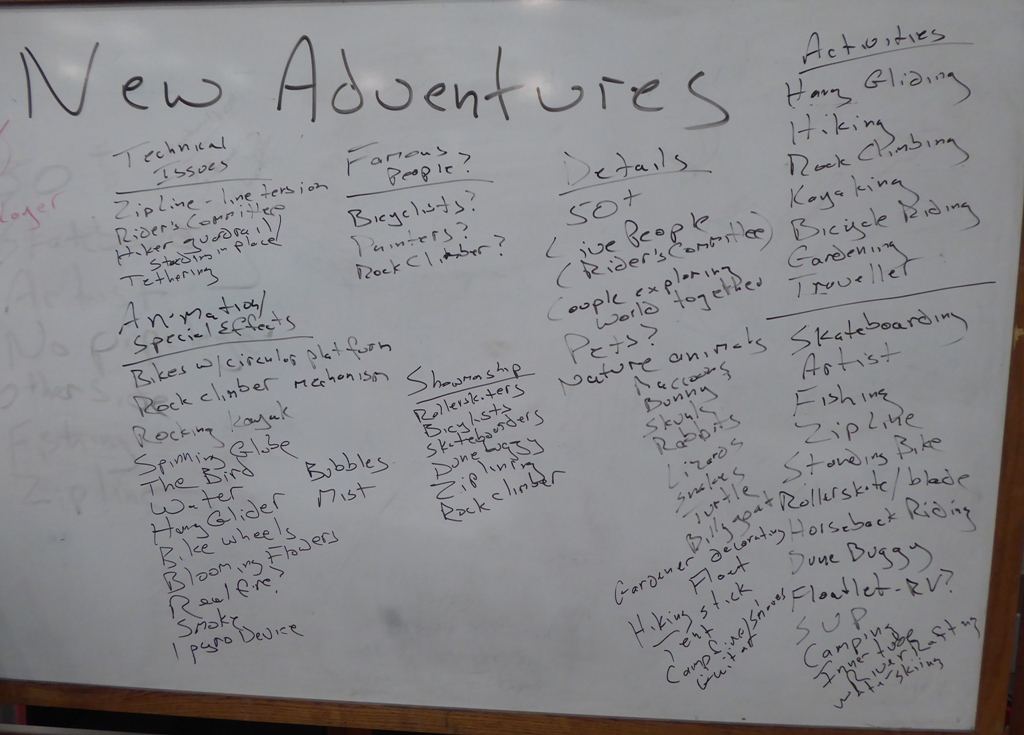 New Adventures
Technical
Issues
Zipline - line tension
Rider's Committee
Hiker quadrail/
standing in place/
Tethering
Animation/
Special Effects
Bikes w/circular platform
Rock climber mechanism
Rocking Kayak
Spinning Globe
The Bird
Water
Hang Glider
Bike wheels
Blooming Flowers
Real fire?
Smoke
1 pyro Device
Bubbles
Mist
Famous
People?
Bicyclists?
Painters?
Rock Climber?
Showmanship
Rollerskaters
Bicyclists
Skateboarders
Dune buggy
Ziplining
Rock climber
Details
50+
Live People
(Rider's Committee)
Couple exploring
world together
Pets?
Nature animals
Raccoons
Bunny
Skunk
Rabbits
Lizards
Snakes
Turtle
Billy goat
Gardener decorating
Float
Hiking stick
Tent
Campfire/Smores
Guitar
Activities
Hang Gliding
Hiking
Rock Climbing
Kayaking
Bicycle Riding
Gardening
Traveller
Skateboarding
Artist
Fishing
Zipline
Standing Bike
Rollerskate/blade
Horseback Riding
Dune Buggy
Floatlet - RV?
SUP
Camping
Inner tube
River Rafting
Water-skiing